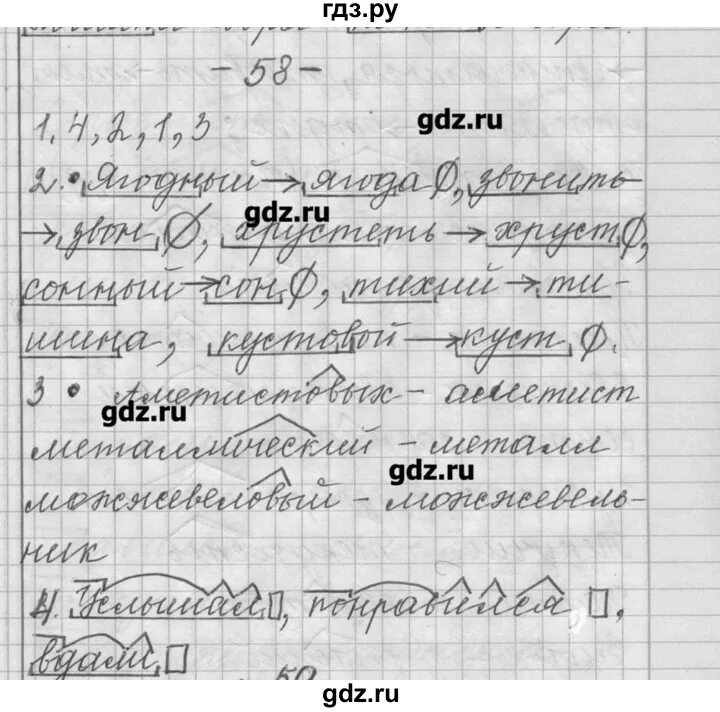 гдз.ру
- 58 -
1. 4, 2, 1, 3
gdz.ru
2. Ягодный → ягода ∅, звонить
gdz.ru
→ звон ∅, хрустеть → хруст ∅,
сонный → сон ∅, тихий → ти-
шина, кустовой → куст ∅.
3. Аметистовых - аметист
gdz.ru
металлический - металл
gdz.ru
можжевеловый - можжевель-
ник
4. Услышал, понравился,
вдали
59
gdz.ru